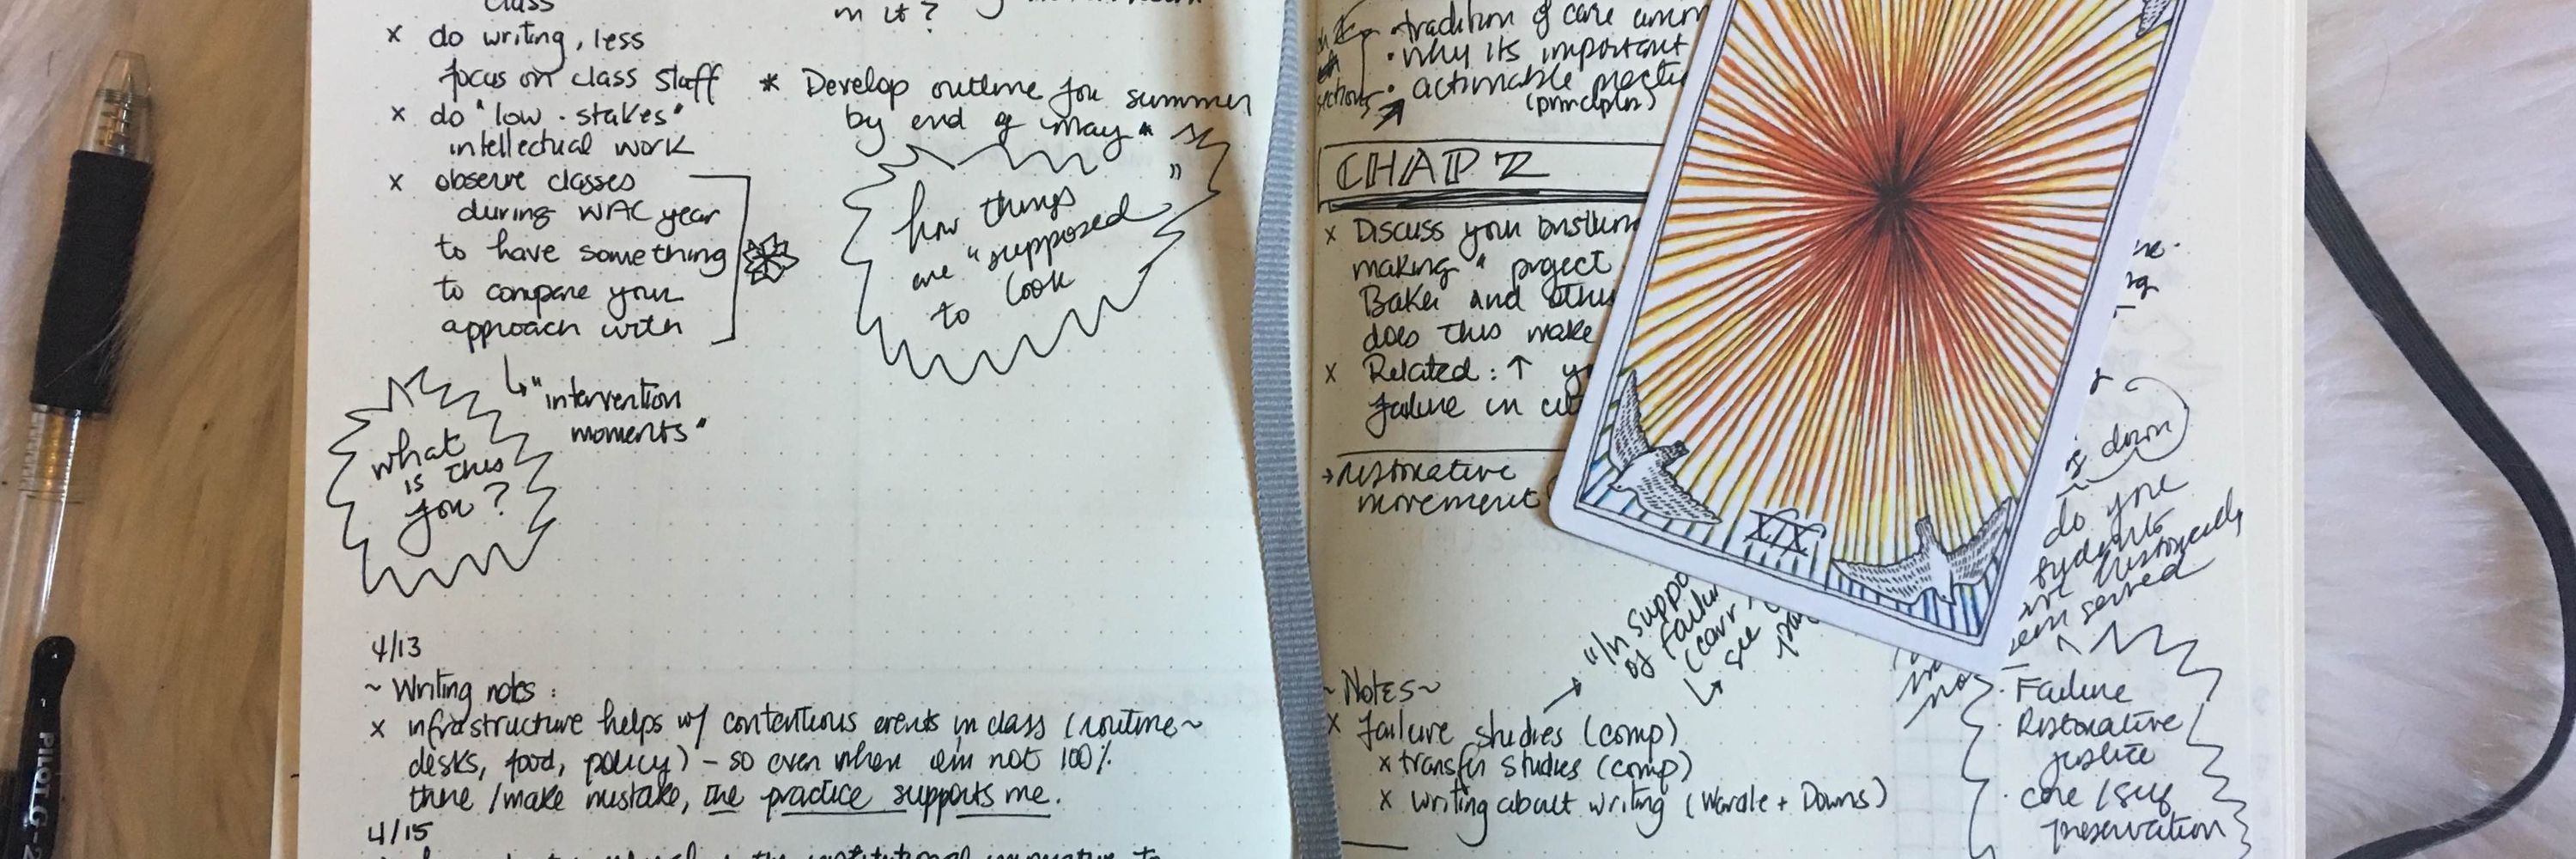 class
x do writing, less
focus on class stuff
x do "low-stakes"
intellectual work
x observe classes
during WAC year
to have something
to compare your
approach with
"intervention
moments"
what
is this
you?
in it?
* Develop outline for summer
by end of may *
how things
are "supposed"
to look
4/13
~ Writing notes:
x infrastructure helps w/ contentious events in class (routine~
desks, food, policy) - so even when I'm not 100%
there / make mistake, the practice supports me.
4/15
• tradition of care
• why its important
• actionable
(principles)
sections
CHAP 2
x Discuss your
making" project
Baker and
does this make
x Related: ↑
failure in
→ restorative
movement
XIX
"In
of
see
~ Notes ~
x failure studies (comp)
x transfer studies (comp)
x writing about writing (Wardle + Downs)
down
do you
students
historically
served
• Failure
• Restorative
justice
• care / self
preservation
PILOT G-2